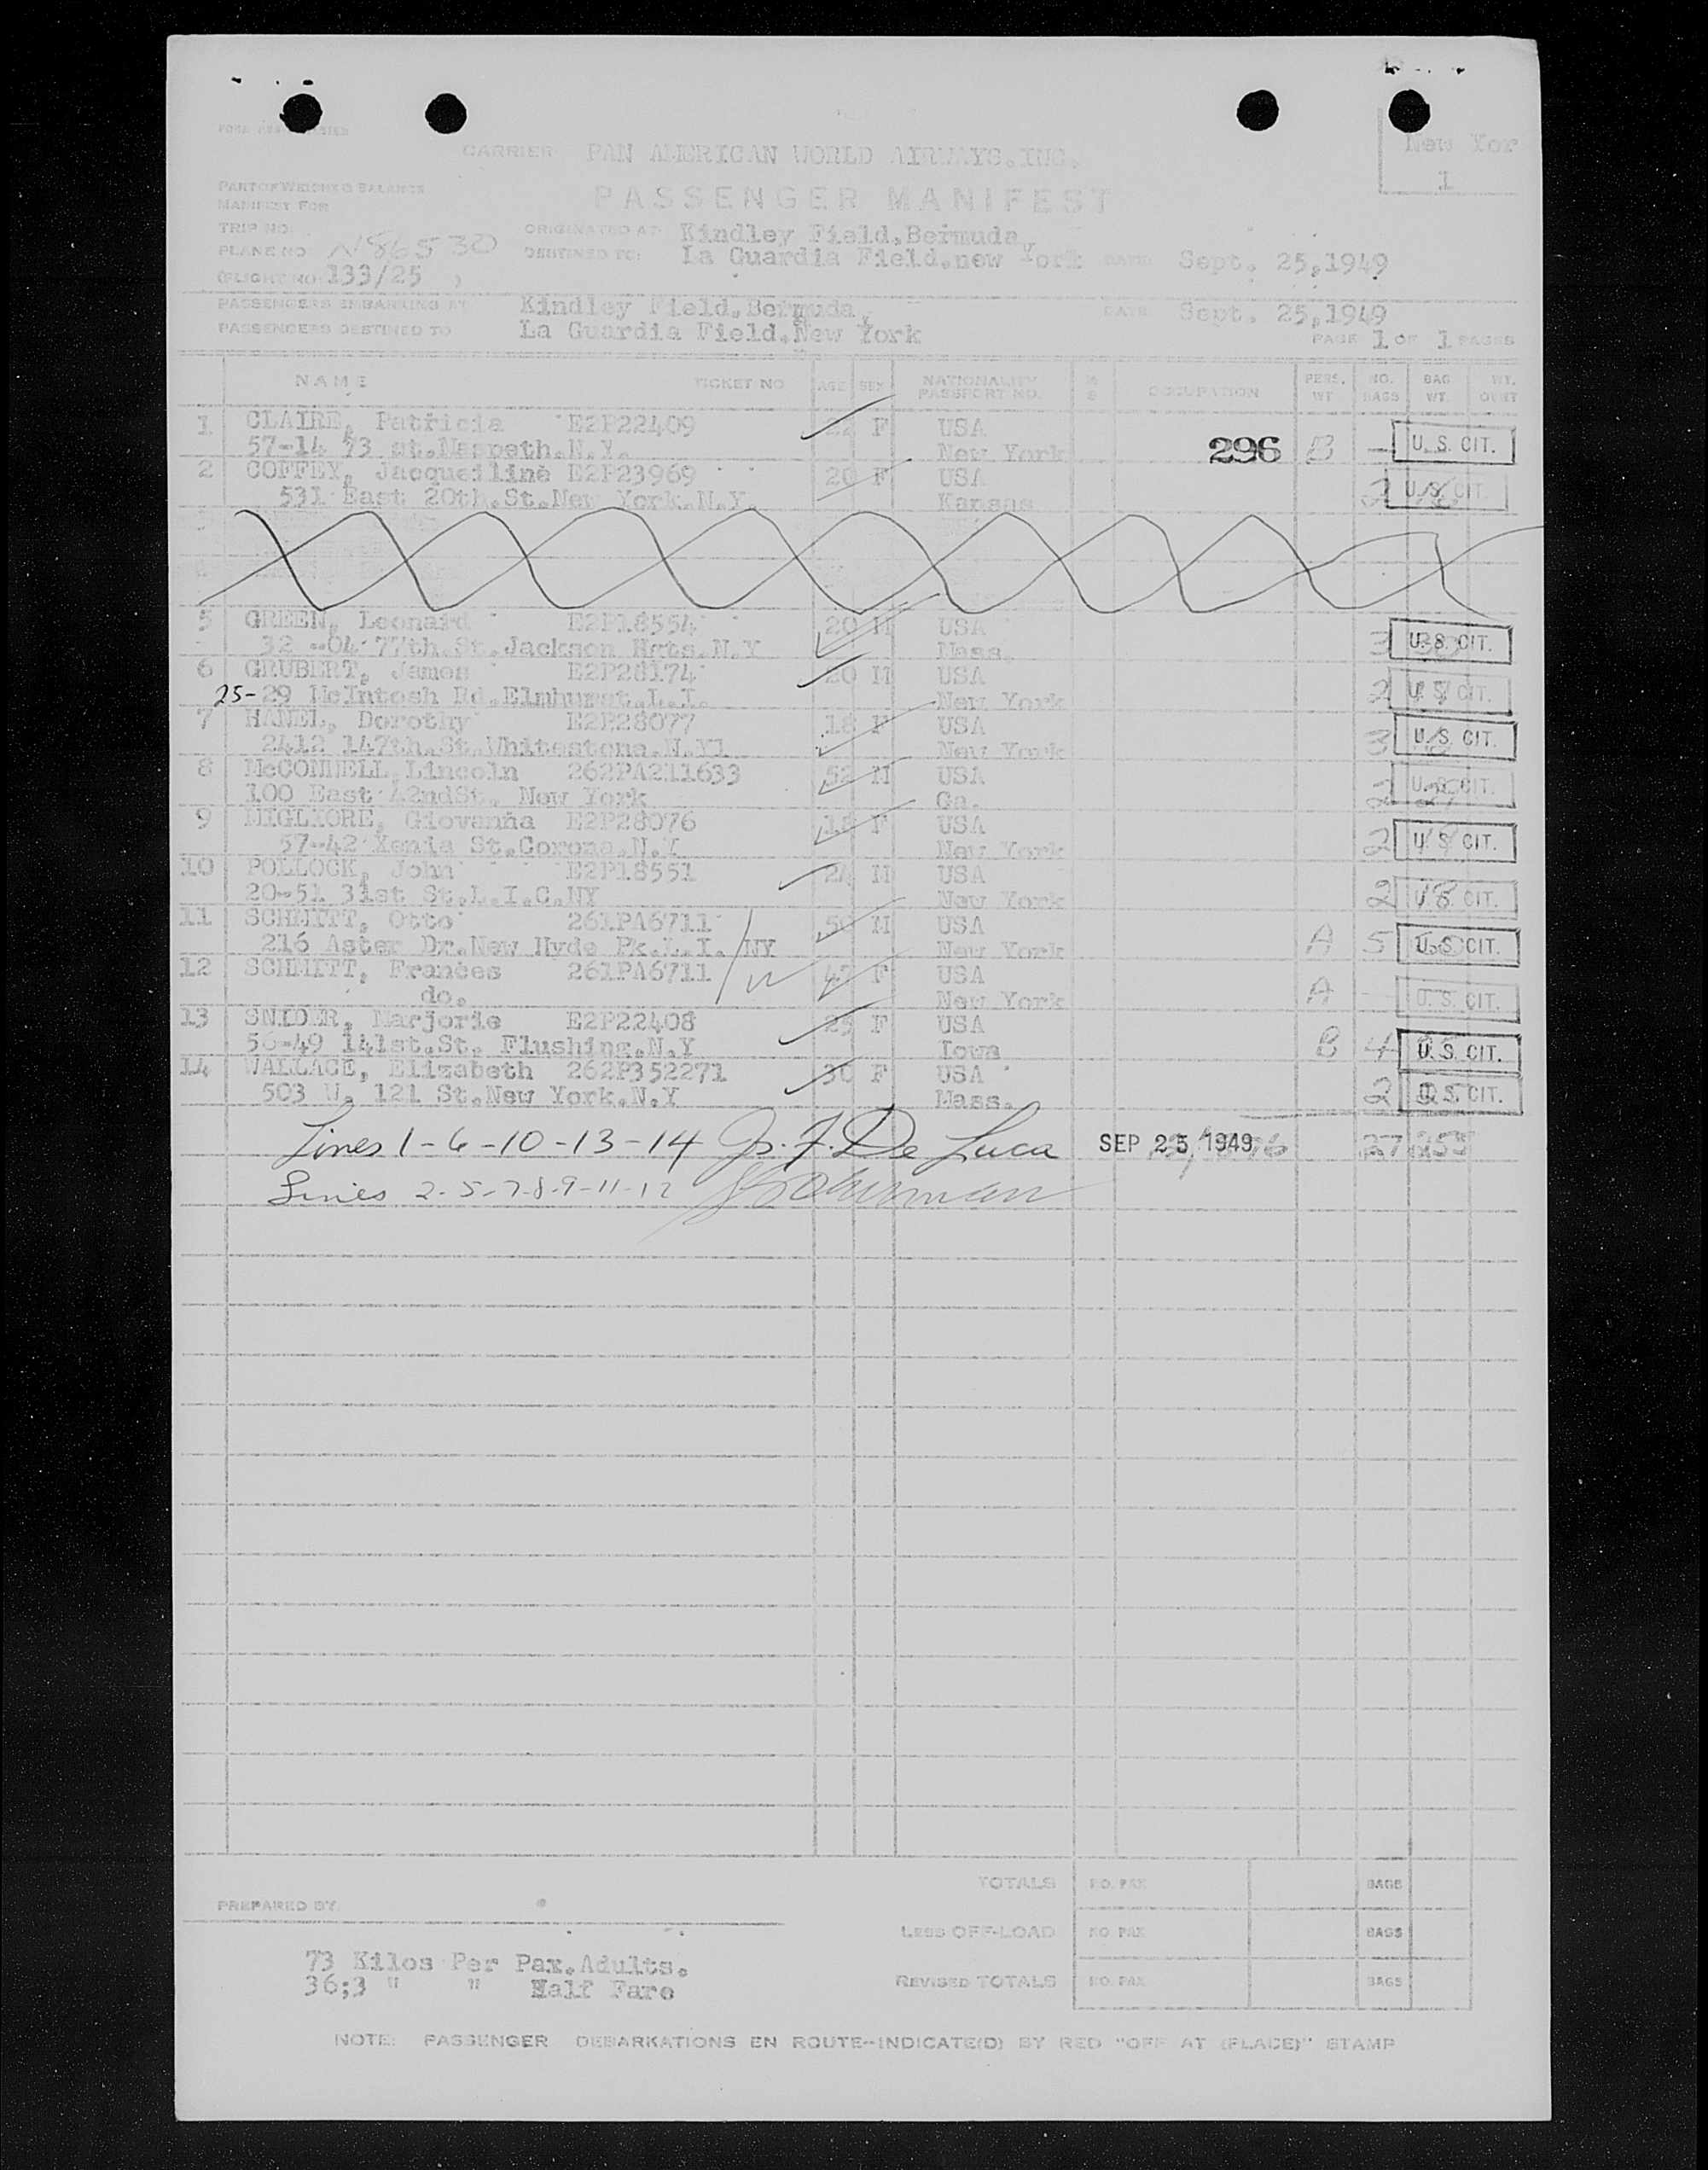 CARRIER PAN AMERICAN WORLD AIRWAYS.INC. New Yor
PART OF WEIGHT & BALANCE
MANIFEST FOR
1
PASSENGER MANIFEST
TRIP NO. ORIGINATED AT: Kindley Field.Bermuda.
PLANE NO N86530 DESTINED TO: La Guardia Field.new York DATE Sept. 25,1949
(FLIGHT NO. 133/25 )
PASSENGERS EMBARKING AT Kindley Field.Bermuda. DATE Sept. 25,1949
PASSENGERS DESTINED TO La Guardia Field.New York PAGE 1 OF 1 PAGES
NAME TICKET NO AGE SEX NATIONALITY PASSPORT NO. OCCUPATION PERS. WT NO. BAGS BAG WT. WT.
1 CLAIRE, Patricia E2P22409 22 F USA
57-14 73 st.Maspeth.N.Y. New York 296 B - U. S. CIT.
2 COFFEY, Jacqueiline E2P23969 20 F USA
531 East 20th.St.New York.N.Y. Kansas 2 U. S. CIT.
5 GREEN, Leonard E2P18554 20 M USA
32 -04 77th.St.Jackson Hgts.N.Y Mass. 3 U. S. CIT.
6 GRUBERT, James E2P28174 20 M USA
25-29 McIntosh Rd.Elmhurst.L.I. New York 2 U. S. CIT.
7 HAMEL, Dorothy E2P28077 18 F USA
2412 147th.St.Whitestone.N.Y1 New York 3 U. S. CIT.
8 McCONNELL,Lincoln 262PA211633 52 M USA
100 East 42ndSt. New York Ga. 2 U. S. CIT.
9 MIGLIORE, Giovanna E2P28076 18 F USA
57-42 Xenia St.Corona.N.Y New York 2 U. S. CIT.
10 POLLOCK, John E2P18551 24 M USA
20-51 31st St.L.I.C.NY New York 2 U. S. CIT.
11 SCHMITT, Otto 261PA6711 50 M USA
216 Aster Dr.New Hyde Pk.L.I. NY New York A 5 U. S. CIT.
12 SCHMITT, Frances 261PA6711 47 F USA
do. New York A - U. S. CIT.
13 SNIDER, Marjorie E2P22408 25 F USA
56-49 141st.St. Flushing.N.Y Iowa B 4 U. S. CIT.
14 WALLACE, Elizabeth 262P352271 30 F USA
503 W. 121 St.New York.N.Y Mass. 2 U. S. CIT.
Lines 1-6-10-13-14 Jos. F. De Luca SEP 25 1949 27 255
Lines 2-5-7-8-9-11-12
TOTALS NO. PAX BAGS
PREPARED BY
LESS OFF-LOAD NO. PAX BAGS
73 Kilos Per Pax.Adults.
REVISED TOTALS NO. PAX BAGS
36;3 " " Half Fare
NOTE: PASSENGER DEBARKATIONS EN ROUTE-INDICATE(D) BY RED "OFF AT (PLACE)" STAMP